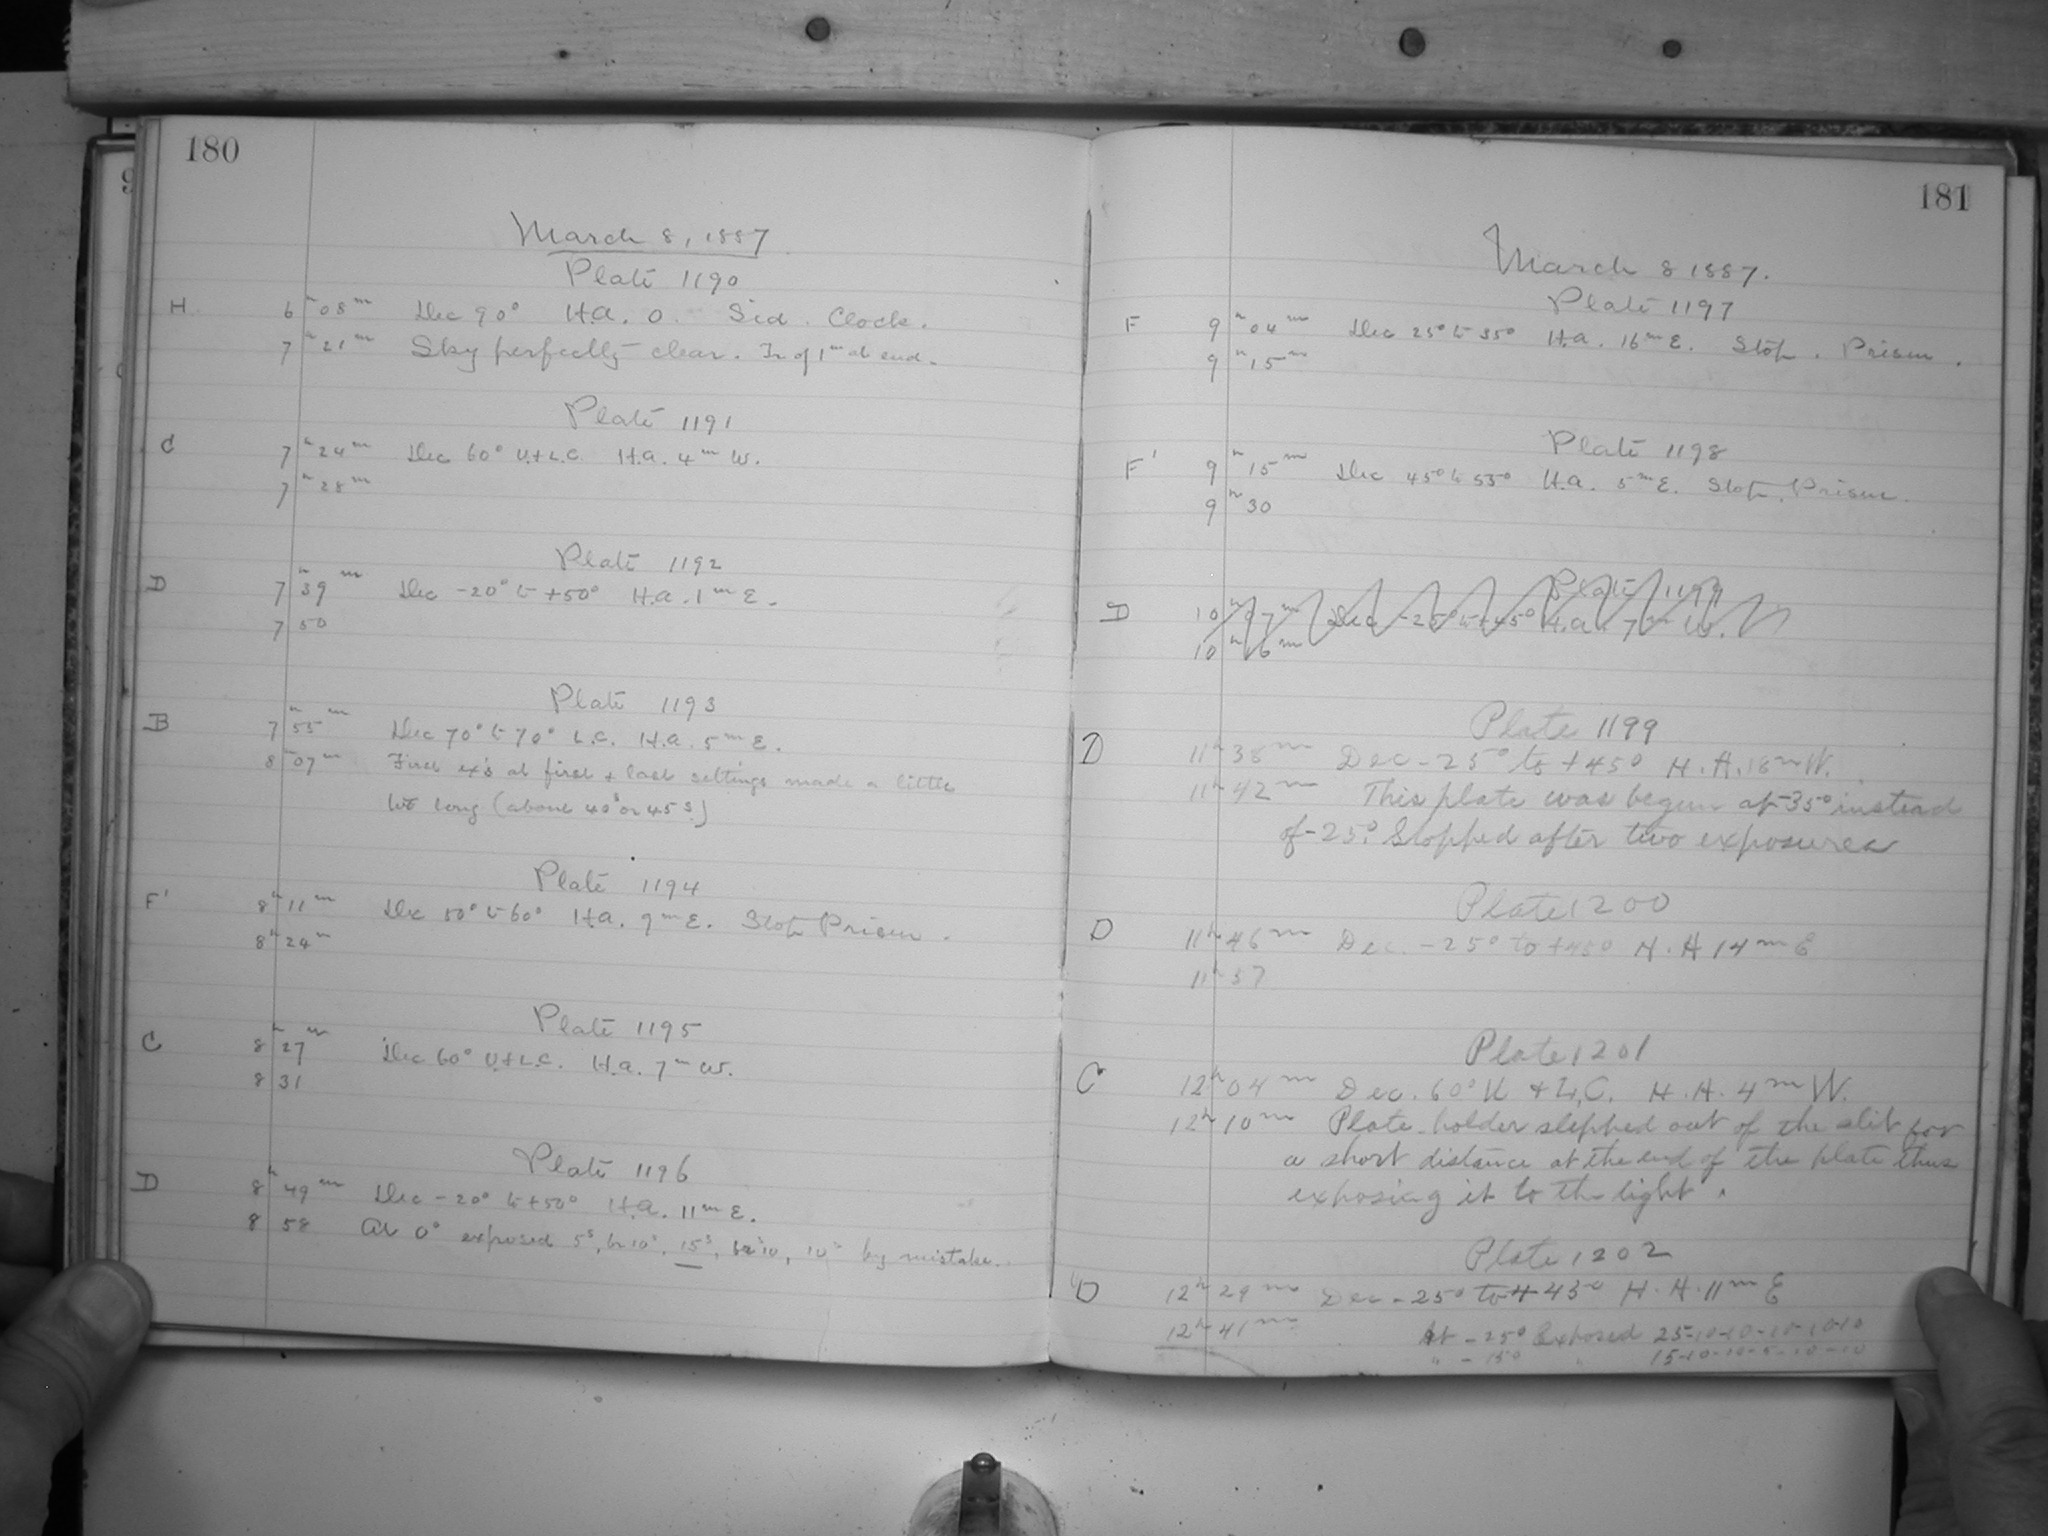 180
March 8, 1887
Plate 1190
H. 6h 08m Dec 90° H.A. 0. Sid. Clock.
7h 21m Sky perfectly clear. Tr of 1m at end.
Plate 1191
C 7h 24m Dec 60° U.+L.C. H.A. 4m W.
7h 28m
Plate 1192
D 7h 39m Dec -20° to +50° H.A. 1m E.
7 50
Plate 1193
B 7h 55m Dec 70° to 70° L.C. H.A. 5m E.
8h 07m First ex's at first + last settings made a little
too long (about 40s or 45s.)
Plate 1194
F' 8h 11m Dec 50° to 60° H.A. 9m E. Stop Prism.
8h 24m
Plate 1195
C 8h 27m Dec 60° U.+L.C. H.A. 7m W.
8 31
Plate 1196
D 8h 49m Dec -20° to +50° H.A. 11m E.
8 58 At 0° exposed 5s, 10s, 15s, 10, 10s by mistake.
181
March 8 1887.
Plate 1197
F 9h 04m Dec 25° to 35° H.A. 16m E. Stop. Prism.
9h 15m
Plate 1198
F' 9h 15m Dec 45° to 55° H.A. 5m E. Stop. Prism.
9h 30
Plate 1199
D 10h 07m Dec -25° to +45° H.A. 7m W.
10h 16m
Plate 1199
D 11h 38m Dec -25° to +45° H.A. 18m W.
11h 42m This plate was begun at -35° instead
of -25°. Stopped after two exposures
Plate 1200
D 11h 46m Dec. -25° to +45° H.A 14m E
11h 57
Plate 1201
C 12h 04m Dec. 60° U + L.C. H.A. 4m W.
12h 10m Plate holder slipped out of the slit for
a short distance at the end of the plate thus
exposing it to the light.
Plate 1202
D 12h 29m Dec -25° to +45° H.A. 11m E
12h 41m At -25° Exposed 25-10-10-10-10-10
" -15° " 15-10-10-5-10-10